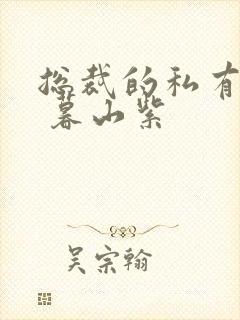 总裁的私有
暮山紫
吴宗翰